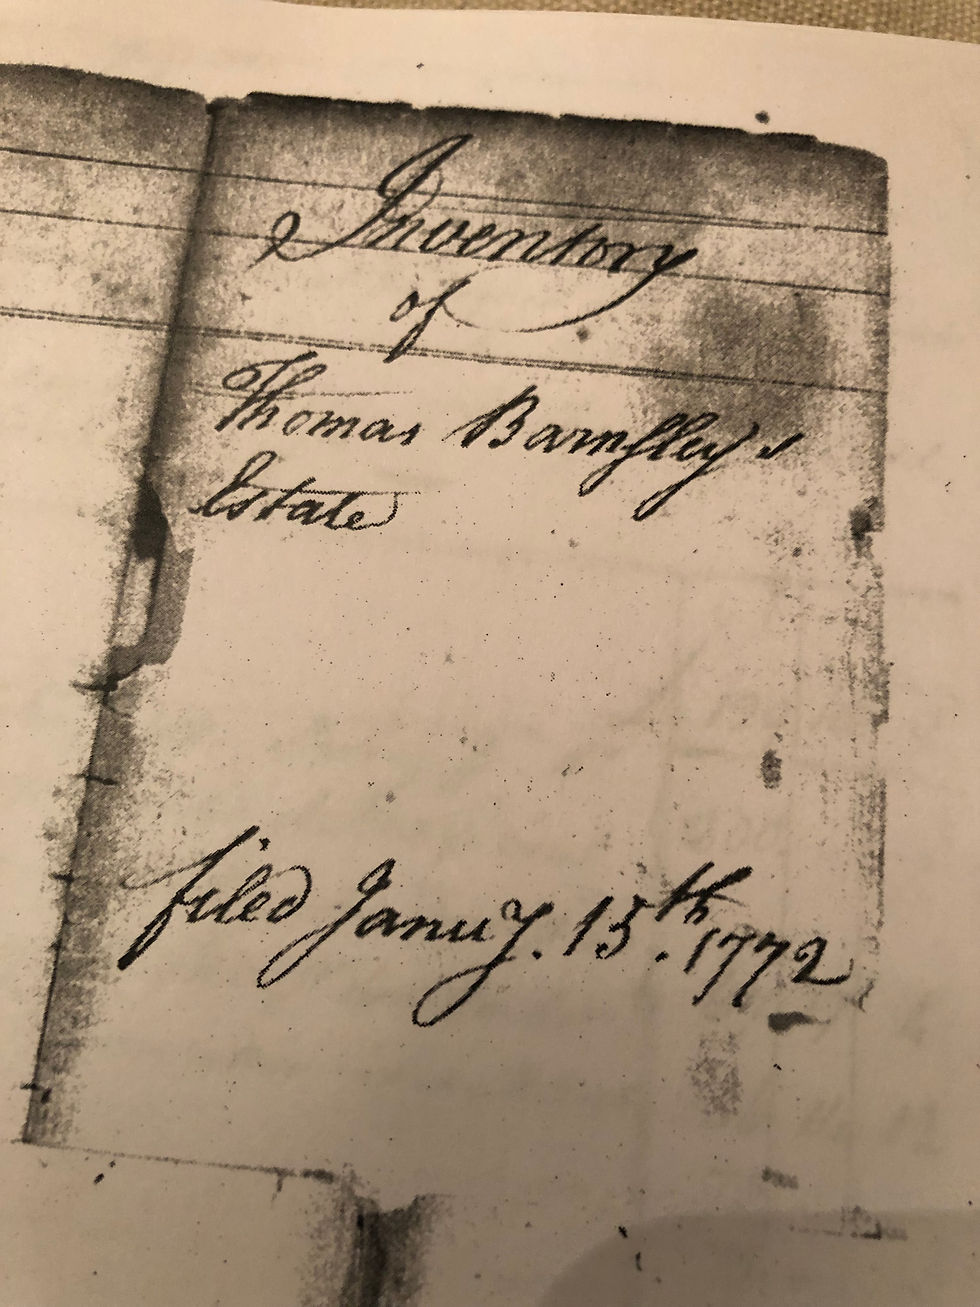 Inventory
of
Thomas Barnſley's
Estate
filed Janu'y. 15th. 1772